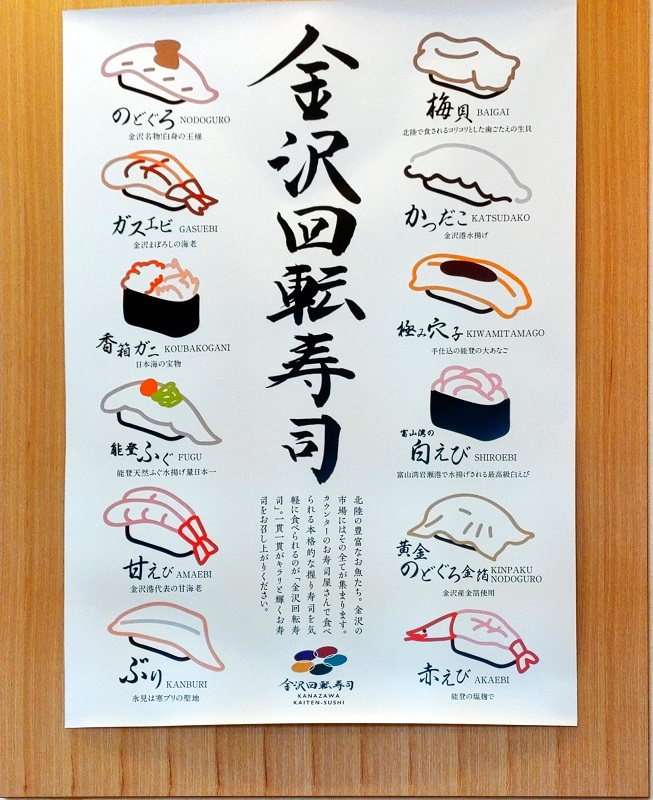 金沢回転寿司
のどぐろ NODOGURO
金沢名物!白身の王様
ガスエビ GASUEBI
金沢まぼろしの海老
香箱ガニ KOUBAKOGANI
日本海の宝物
能登ふぐ FUGU
能登天然ふぐ水揚げ量日本一
甘えび AMAEBI
金沢港代表の甘海老
ぶり KANBURI
氷見は寒ブリの聖地
梅貝 BAIGAI
北陸で食されるコリコリとした歯ごたえの生貝
かつだこ KATSUDAKO
金沢港水揚げ
極み穴子 KIWAMITAMAGO
手仕込の能登の大あなご
富山湾の
白えび SHIROEBI
富山湾岩瀬港で水揚げされる最高級白えび
黄金
のどぐろ金箔 KINPAKU NODOGURO
金沢産金箔使用
赤えび AKAEBI
能登の塩麹で
北陸の豊富なお魚たち。金沢の
市場にはその全てが集まります。
カウンターのお寿司屋さんで食べ
られる本格的な握り寿司を気
軽に食べられるのが「金沢回転寿
司」。一貫一貫がキラリと輝くお寿
司をお召し上がりください。
金沢回転寿司
KANAZAWA
KAITEN-SUSHI